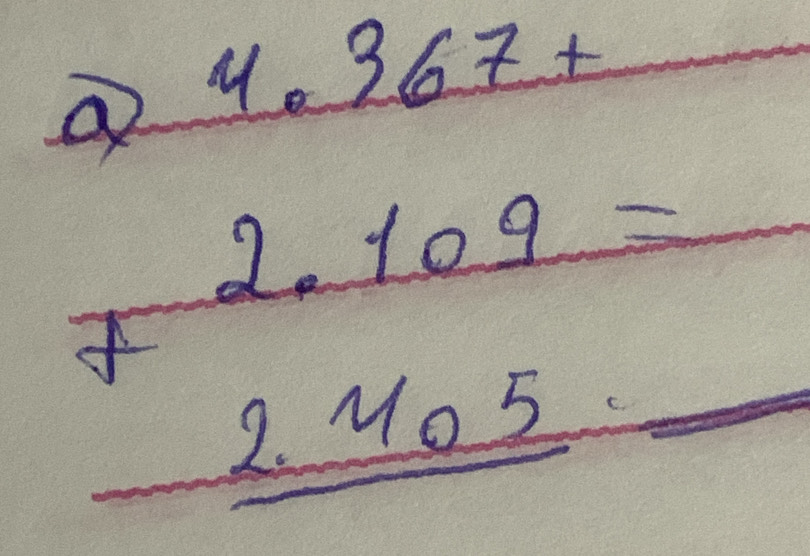 a) 4.367+
2.109 =
+
2.405